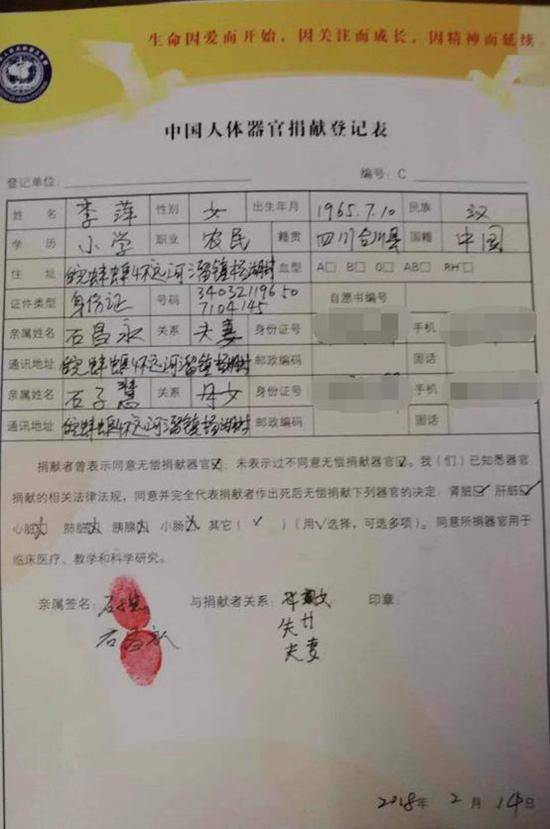 生命因爱而开始，因关注而成长，因精神而延续
中国人体器官捐献登记表
登记单位： 编号：C
姓名 李萍 性别 女 出生年月 1965.7.10 民族 汉
学历 小学 职业 农民 籍贯 四川合川县 国籍 中国
住址 皖蚌埠怀远河溜镇杨湖村 血型 A□ B□ O□ AB□ RH□
证件类型 身份证 号码 34032119650 7104145 自愿书编号
亲属姓名 石昌永 关系 夫妻 身份证号 手机
通讯地址 皖蚌埠怀远河溜镇杨湖村 邮政编码 固话
亲属姓名 石子慧 关系 母女 身份证号 手机
通讯地址 皖蚌埠怀远河溜镇杨湖村 邮政编码 固话
捐献者曾表示同意无偿捐献器官☑；未表示过不同意无偿捐献器官☑。我（们）已知悉器官
捐献的相关法律法规，同意并完全代表捐献者作出死后无偿捐献下列器官的决定：肾脏☑ 肝脏☑
心脏☑ 肺脏☑ 胰腺☑ 小肠☑ 其它（ ✓ ）(用√选择，可选多项)。同意所捐器官用于
临床医疗、教学和科学研究。
亲属签名： 与捐献者关系： 印章：
石昌永
夫妻
2018年 2月 14日